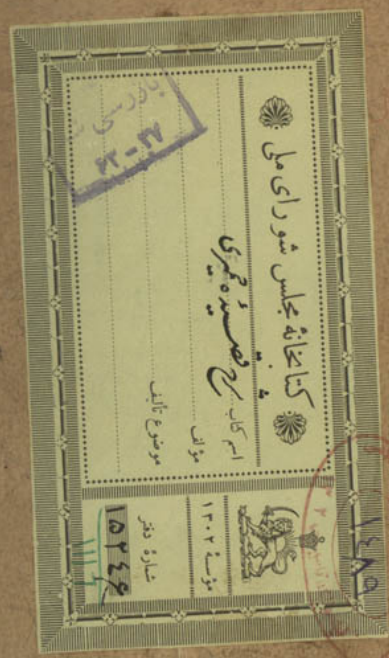 کتابخانهٔ مجلس شورای ملی
اسم کتاب شرح قصیدهٔ حمیری
مؤلف
موضوع تألیف
مؤسسهٔ ۱۳۰۲
شمارهٔ دفتر
۱۵۲۴۶
بازرسی شد
۶۳-۳۷